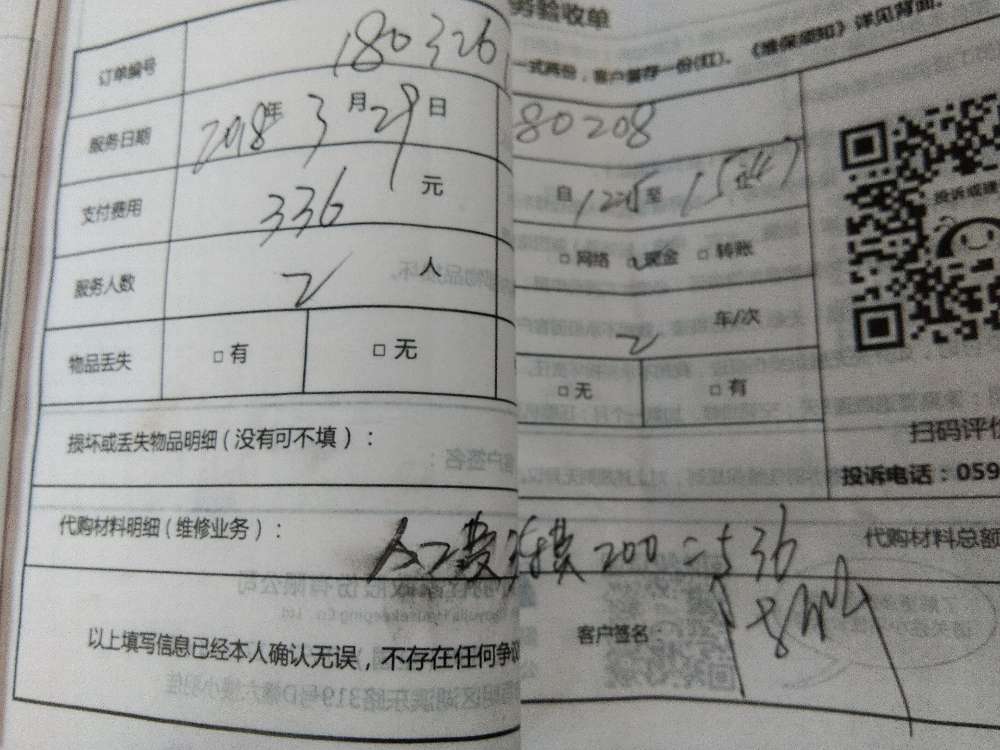 务验收单
一式两份，客户留存一份(红)。《维保须知》详见背面。
订单编号 180326
80208
服务日期 2018年3月29日
自 至
支付费用 336 元
□ 网络 现金 □ 转账
服务人数 2 人
2 车/次
物品丢失 □ 有 □ 无
□ 无 □ 有
投诉或建
扫码评价
损坏或丢失物品明细（没有可不填）：
投诉电话：059
代购材料明细（维修业务）：
200=536
代购材料总额
以上填写信息已经本人确认无误，不存在任何争议
客户签名：